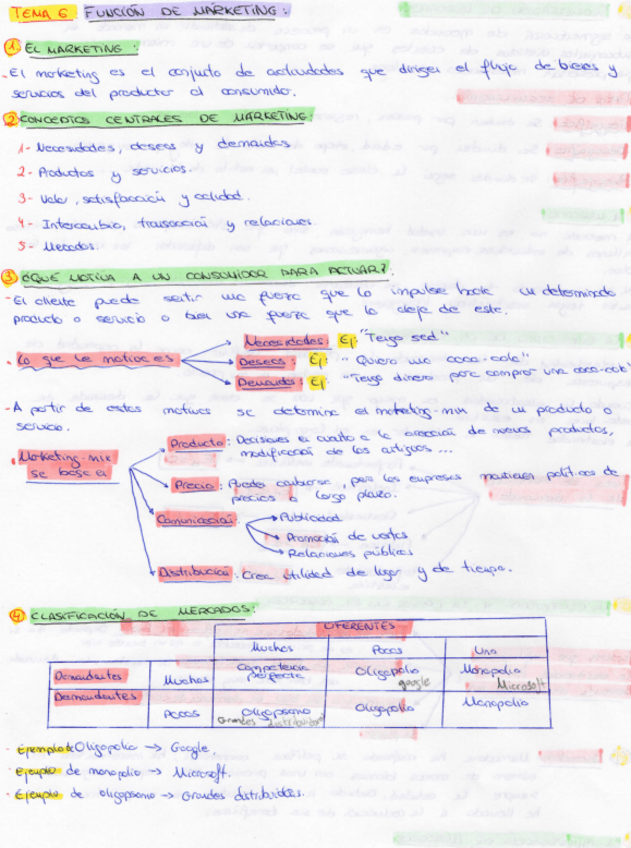 TEMA 6: FUNCIÓN DE MARKETING:
1 EL MARKETING:
- El marketing es el conjunto de actividades que dirigen el flujo de bienes y
servicios del productor al consumido.
2 CONCEPTOS CENTRALES DE MARKETING:
1- Necesidades, deseos y demandas
2- Productos y servicios.
3- Valor, satisfacción y calidad.
4- Intercambio, transacción y relaciones.
5- Mercados.
3 ¿QUÉ MOTIVA A UN CONSUMIDOR PARA ACTUAR?
- El cliente puede sentir una fuerza que lo impulse hacia un determinado
producto o servicio o bien una fuerza que lo aleje de este.
Necesidades: Ej: "Tengo sed"
• Lo que le motiva es Deseos: Ej: "Quiero una coca-cola"
Demanda: Ej: "Tengo dinero para comprar una coca-cola"
- A partir de estos motivos se determina el marketing-mix de un producto o
servicio.
Producto: Decisiones en cuanto a la creación de nuevos productos,
modificación de los antiguos ...
• Marketing-mix
se basa en
Precio: Puede cambiarse, pero las empresas mantienen políticas de
precios a largo plazo.
Comunicación → Publicidad
→ Promoción de ventas
→ Relaciones públicas
Distribución: Crea utilidad de lugar y de tiempo.
4 CLASIFICACIÓN DE MERCADOS:
OFERENTES
Muchos Pocos Uno
Demandantes Muchos Competencia perfecta Oligopolio google Monopolio Microsoft
Demandantes Pocos Oligopsonio Grandes distribuidoras Oligopolio Monopolio
· Ejemplo de Oligopolio → Google.
· Ejemplo de monopolio → Microsoft.
· Ejemplo de oligopsonio → Grandes distribuidas.